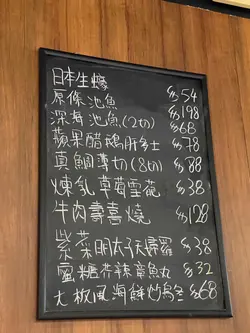 日本生蠔 $54
原條池魚 $198
深海池魚(2切) $68
蘋果醋鵝肝多士 $78
真鯛薄切(8切) $88
煉乳草莓雪花 $38
牛肉壽喜燒 $128
紫菜明太子天婦羅 $38
蜜糖芥辣章魚丸 $32
大板風海鮮炒烏冬 $68